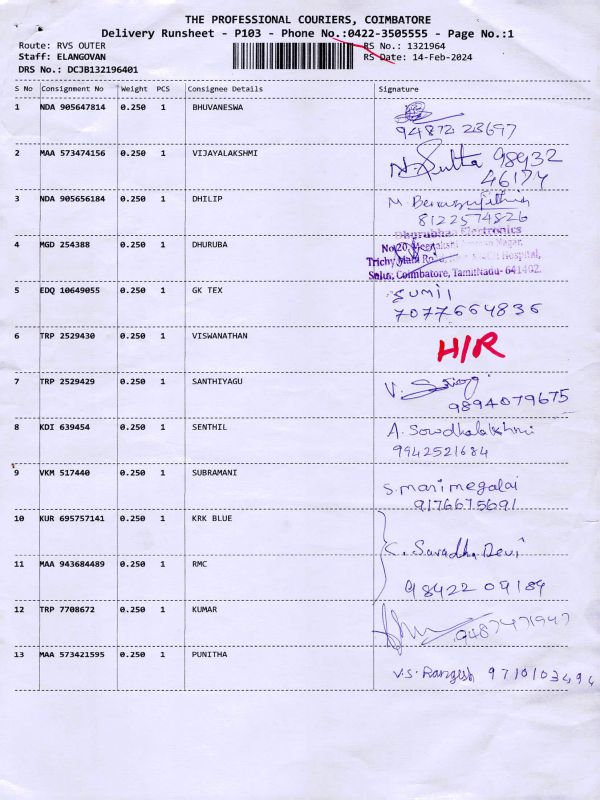 THE PROFESSIONAL COURIERS, COIMBATORE
Delivery Runsheet - P103 - Phone No.:0422-3505555 - Page No.:1
Route: RVS OUTER RS No.: 1321964
Staff: ELANGOVAN RS Date: 14-Feb-2024
DRS No.: DCJB132196401
S No Consignment No Weight PCS Consignee Details Signature
1 NDA 905647814 0.250 1 BHUVANESWA
94872 23697
2 MAA 573474156 0.250 1 VIJAYALAKSHMI
98432
46174
3 NDA 905656184 0.250 1 DHILIP M.
8122574826
Dhurubhan Electronics
4 MGD 254388 0.250 1 DHURUBA No:20, Meenakshi Nagar,
Trichy Main Hospital,
Sulur, Coimbatore, TamilNadu- 641402.
5 EDQ 10649055 0.250 1 GK TEX SUMIL
7077664836
6 TRP 2529430 0.250 1 VISWANATHAN H/R
7 TRP 2529429 0.250 1 SANTHIYAGU V.
9894079675
8 KDI 639454 0.250 1 SENTHIL A. Sowdhalakshmi
9942521684
9 VKM 517440 0.250 1 SUBRAMANI
S.manimegalai
9176675691
10 KUR 695757141 0.250 1 KRK BLUE
Saradha Devi
11 MAA 943684489 0.250 1 RMC
98422 09189
12 TRP 7708672 0.250 1 KUMAR
9487471947
13 MAA 573421595 0.250 1 PUNITHA
V.S. Rangesh 9710103494